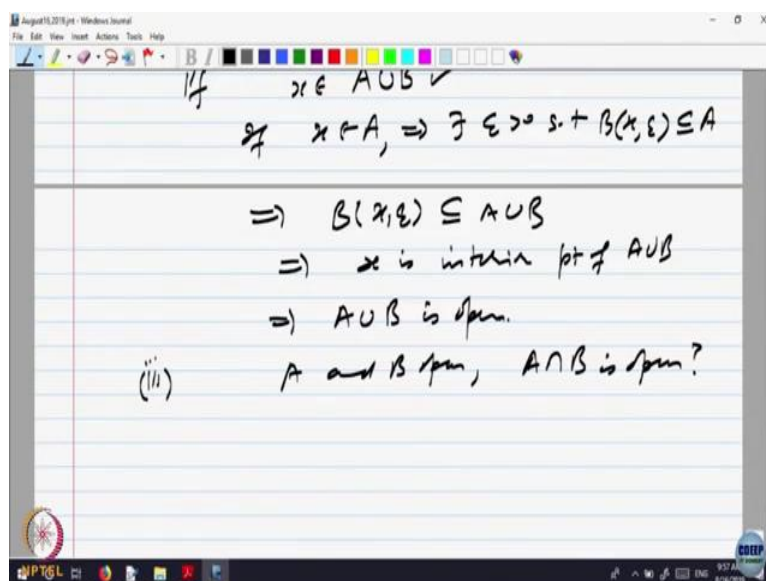 August16,2019.jnt - Windows Journal
File Edit View Insert Actions Tools Help
If x ∈ A ∪ B ✓
If x ∈ A, ⇒ ∃ ε >0 s.t B(x, ε) ⊆ A
⇒ B(x, ε) ⊆ A ∪ B
⇒ x is interior pt of A∪B
⇒ A ∪ B is open.
(iii) A and B open, A ∩ B is open?
NPTEL
CDEEP
ENG